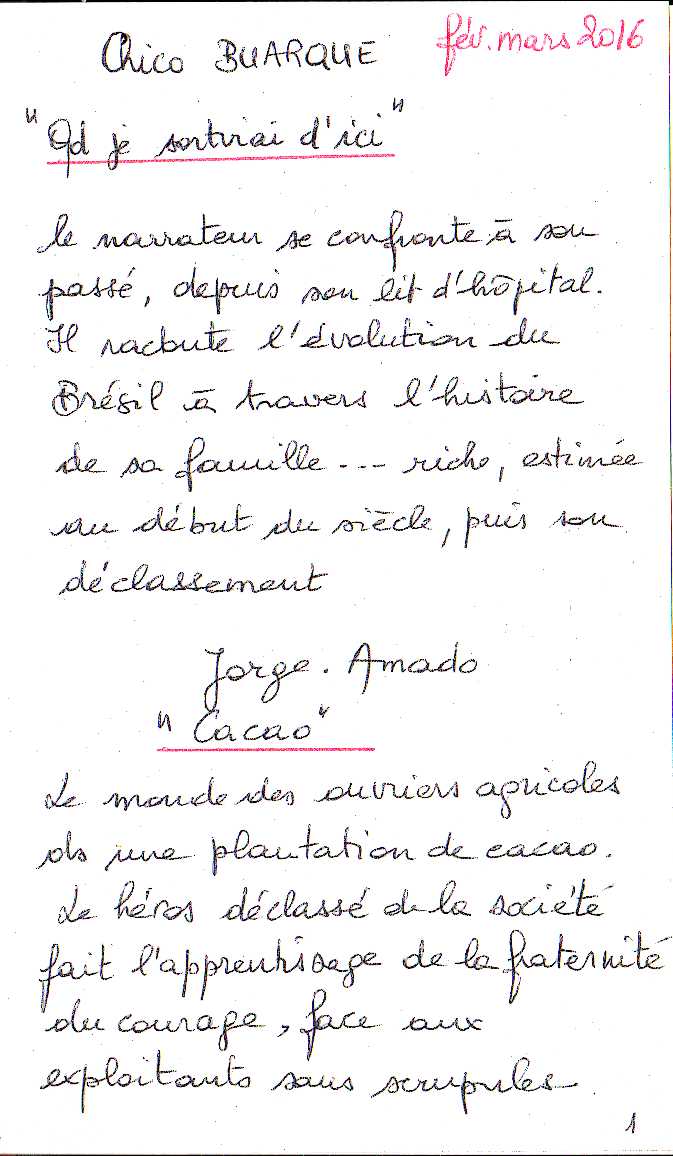 Chico BUARQUE
fév. mars 2016
"Qd je sortirai d'ici"
le narrateur se confronte à son
passé, depuis son lit d'hôpital.
Il raconte l'évolution du
Brésil à travers l'histoire
de sa famille --- riche, estimée
au début du siècle, puis son
déclassement
Jorge. Amado
"Cacao"
Le monde des ouvriers agricoles
ds une plantation de cacao.
Le héros déclassé de la société
fait l'apprentissage de la fraternité
du courage, face aux
exploitants sans scrupules
1